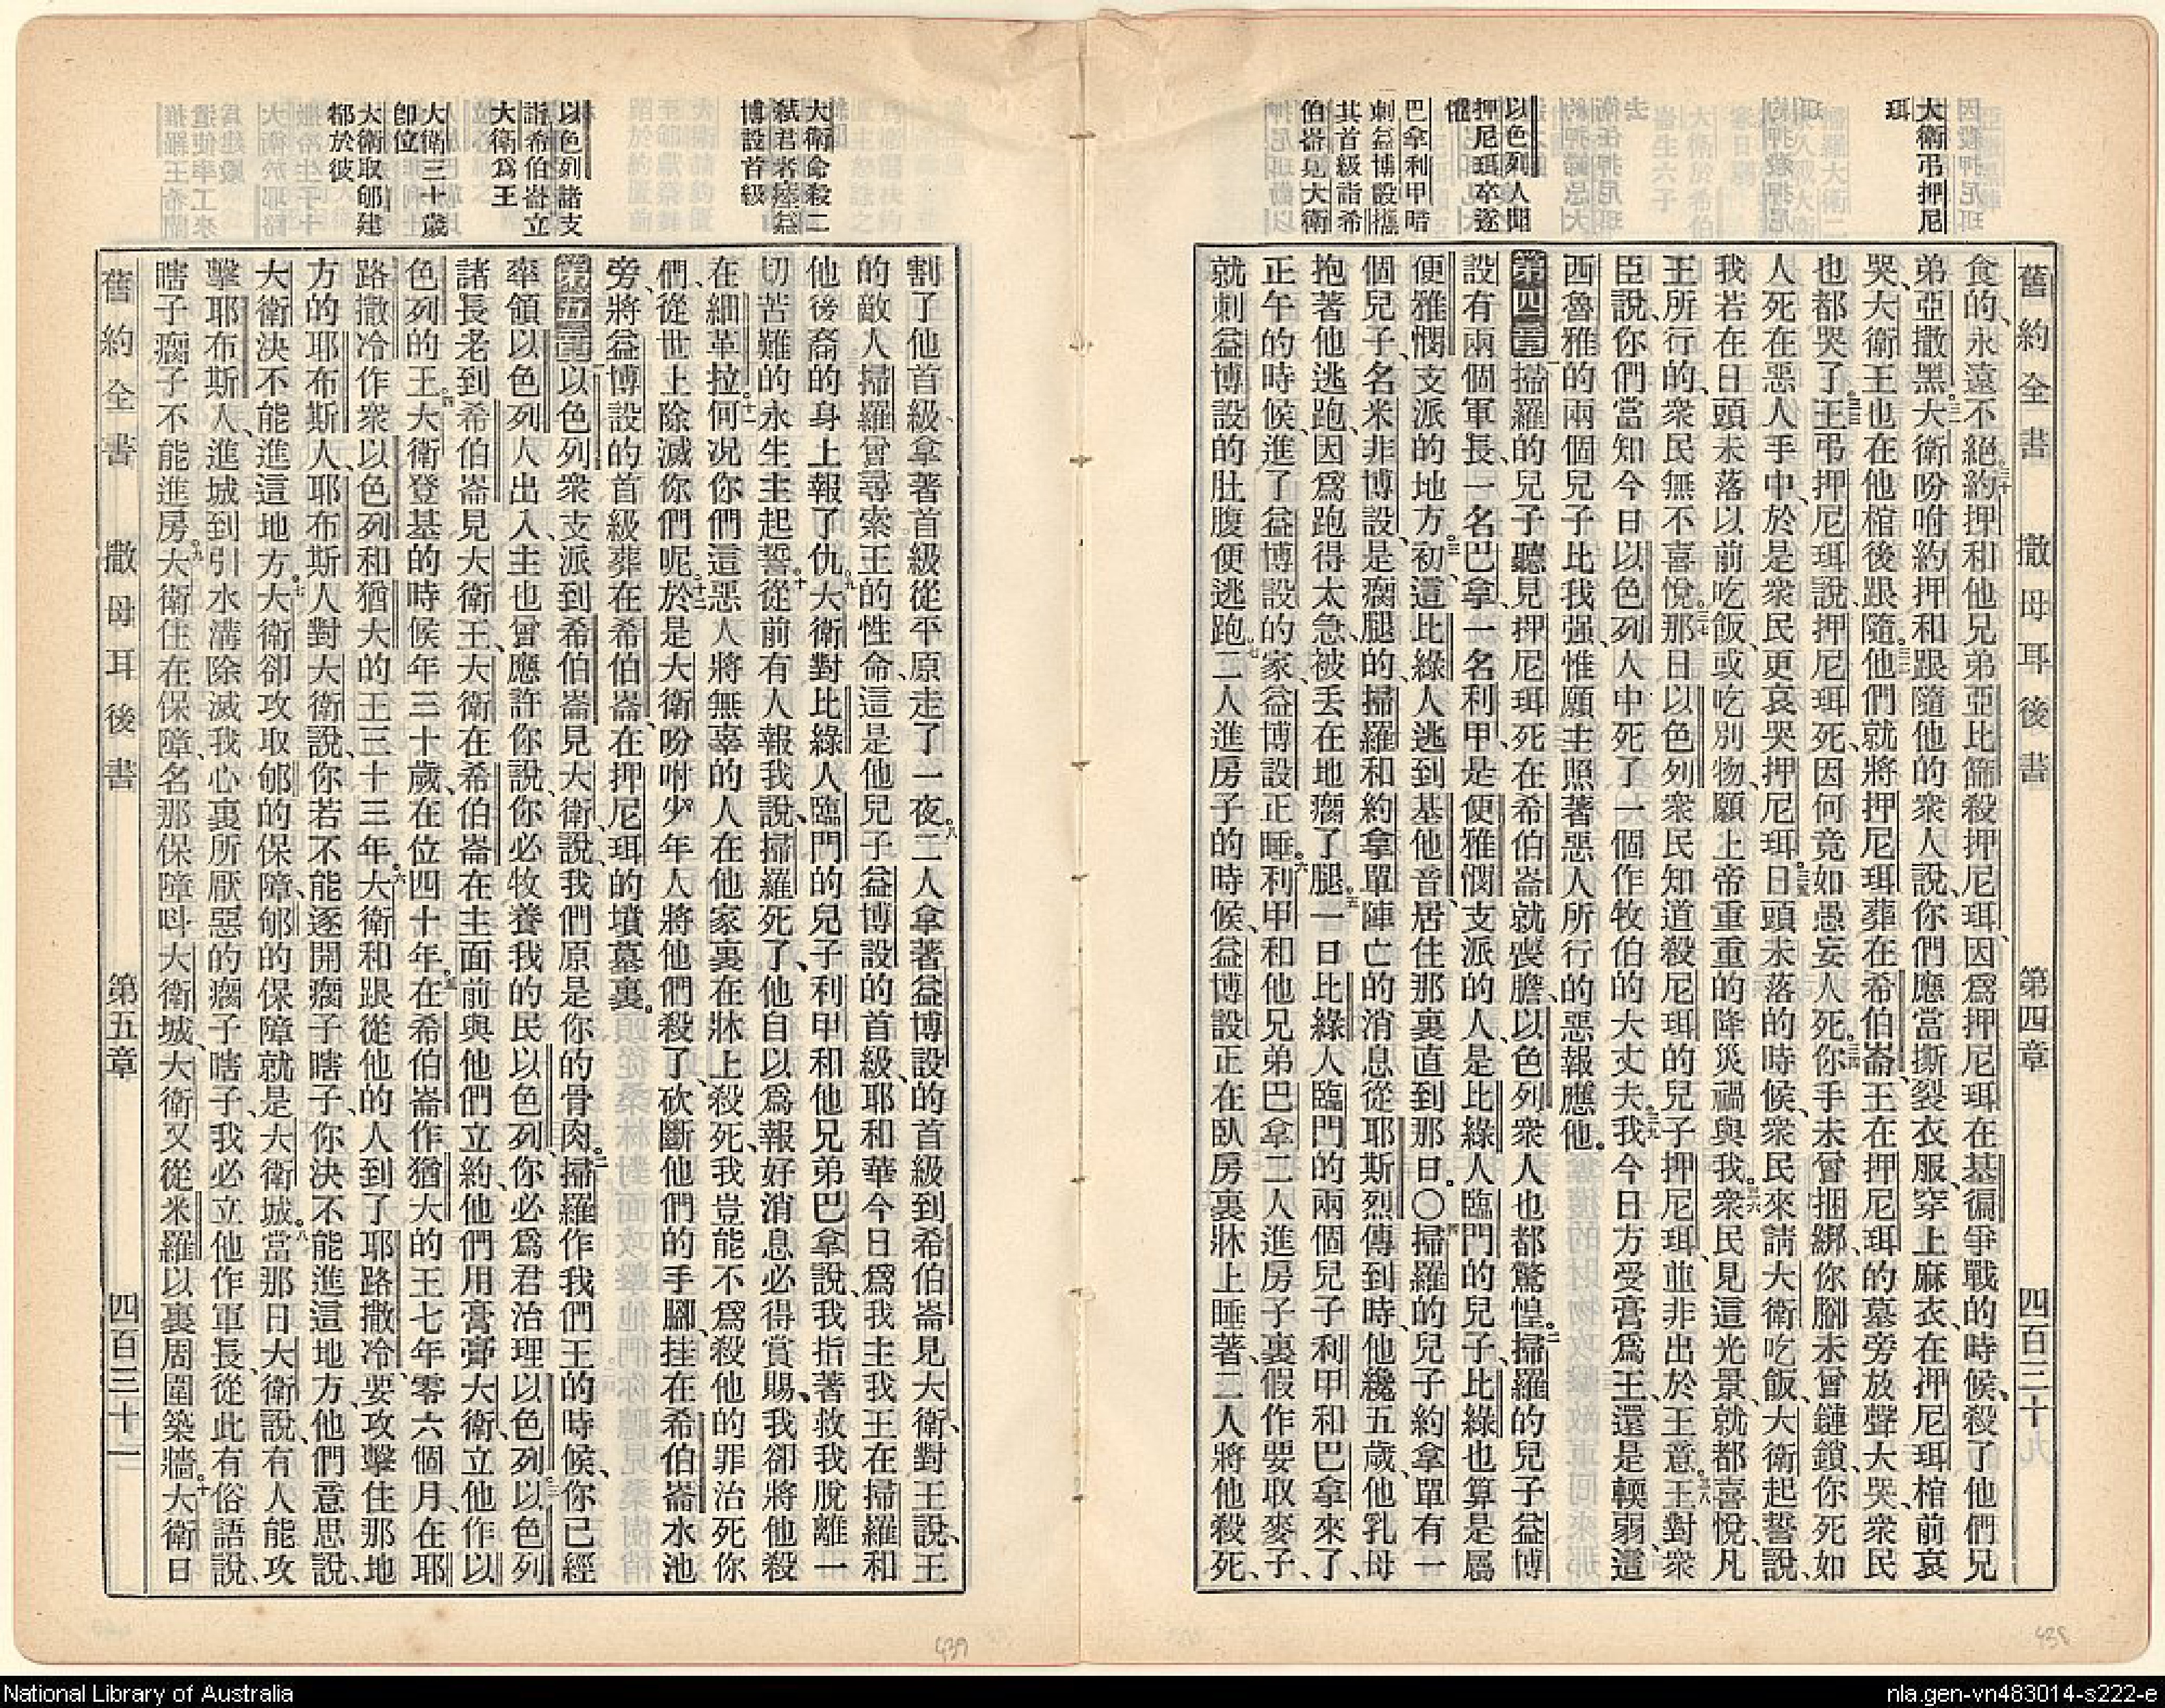 大衛弔押尼
珥
以色列人聞
押尼珥卒遂
慌
巴拿利甲暗
刺益博設攜
其首級詣希
伯崙見大衛
舊約全書 撒母耳後書 第四章 四百三十九
食的、永遠不絕、三十約押和他兄弟亞比篩殺押尼珥、因爲押尼珥在基徧爭戰的時候、殺了他們兄
弟亞撒黑。三一大衛吩咐約押和跟隨他的衆人說、你們應當撕裂衣服、穿上麻衣、在押尼珥棺前哀
哭、大衛王也在他棺後跟隨。三二他們就將押尼珥葬在希伯崙、王在押尼珥的墓旁放聲大哭、衆民
也都哭了。三三王弔押尼珥說、押尼珥死、因何竟如愚妄人死。三四你手未曾捆綁、你腳未曾鏈鎖、你死如
人死在惡人手中、於是衆民更哀哭押尼珥。三五日頭未落的時候、衆民來請大衛吃飯、大衛起誓說、
我若在日頭未落以前吃飯、或吃別物、願上帝重重的降災禍與我。三六衆民見這光景、就都喜悅、凡
王所行的、衆民無不喜悅。三七那日以色列衆民知道殺尼珥的兒子押尼珥、並非出於王意。三八王對衆
臣說、你們當知今日以色列人中死了一個作牧伯的大丈夫。三九我今日方受膏爲王、還是輭弱、這
西魯雅的兩個兒子比我强、惟願主照著惡人所行的惡報應他。
第四章 掃羅的兒子聽見押尼珥死在希伯崙、就喪膽、以色列衆人也都驚惶。二掃羅的兒子益博
設有兩個軍長、一名巴拿、一名利甲、是便雅憫支派的人、是比綠人臨門的兒子、比綠也算是屬
便雅憫支派的地方。三初這比綠人逃到基他音、居住那裏直到那日。〇四掃羅的兒子約拿單有一
個兒子、名米非博設、是瘸腿的、掃羅和約拿單陣亡的消息從耶斯烈傳到時、他纔五歲、他乳母
抱著他逃跑、因爲跑得太急、被丟在地、瘸了腿。五一日比綠人臨門的兩個兒子利甲和巴拿來了、
正午的時候、進了益博設的家、益博設正睡。六利甲和他兄弟巴拿二人進房子裏、假作要取麥子、
就刺益博設的肚腹便逃跑。七二人進房子的時候、益博設正在臥房裏牀上睡著、二人將他殺死、
大衛命殺二
弒君者瘞益
博設首級
以色列諸支
詣希伯崙立
大衛爲王
大衛三十歲
卽位
大衛取郇建
都於彼
割了他首級、拿著首級從平原走了一夜。八二人拿著益博設的首級到希伯崙見大衛、對王說、王
的敵人掃羅曾尋索王的性命、這是他兒子益博設的首級、耶和華今日爲我主我王在掃羅和
他後裔的身上報了仇。九大衛對比綠人臨門的兒子利甲和他兄弟巴拿說、我指著救我脫離一
切苦難的永生主起誓、十從前有人報我說、掃羅死了、他自以爲報好消息必得賞賜、我卻將他殺
在細革拉、十一何況你們這惡人將無辜的人在他家裏在牀上殺死、我豈能不爲殺他的罪治死你
們、從世上除滅你們呢。十二於是大衛吩咐少年人將他們殺了、砍斷他們的手腳、挂在希伯崙水池
旁、將益博設的首級葬在希伯崙、在押尼珥的墳墓裏。
第五章 一以色列衆支派到希伯崙見大衛、說、我們原是你的骨肉。二掃羅作我們王的時候、你已經
率領以色列人出入、主也曾應許你說、你必牧養我的民以色列、你必爲君治理以色列。三以色列
諸長老到希伯崙見大衛王、大衛在希伯崙在主面前與他們立約、他們用膏膏大衛、立他作以
色列的王。四大衛登基的時候、年三十歲、在位四十年。五在希伯崙作猶大的王七年零六個月、在耶
路撒冷作衆以色列和猶大的王三十三年。六大衛和跟從他的人到了耶路撒冷、要攻擊住那地
方的耶布斯人、耶布斯人對大衛說、你若不能逐開瘸子瞎子、你決不能進這地方、他們意思說、
大衛決不能進這地方。七大衛卻攻取郇的保障、郇的保障就是大衛城。八當那日大衛說、有人能攻
擊耶布斯人、進城到引水溝除滅我心裏所厭惡的瘸子瞎子、我必立他作軍長、從此有俗語說、
瞎子瘸子不能進房。九大衛住在保障、名那保障呌大衛城、大衛又從米羅以裏周圍築牆。十大衛日
舊約全書 撒母耳後書 第五章 四百三十一
439
438
National Library of Australia
nla.gen-vn483014-s222-e